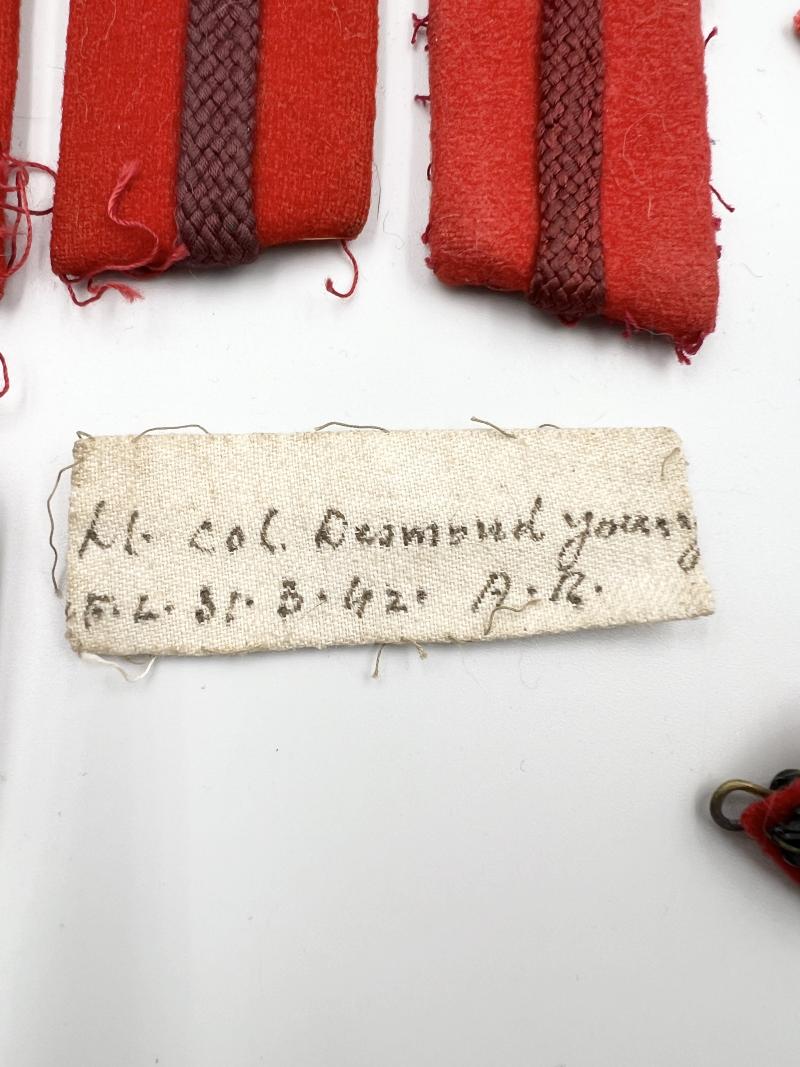 Lt. Col. Desmond Young
F.L. 31. 3. 42. A.R.